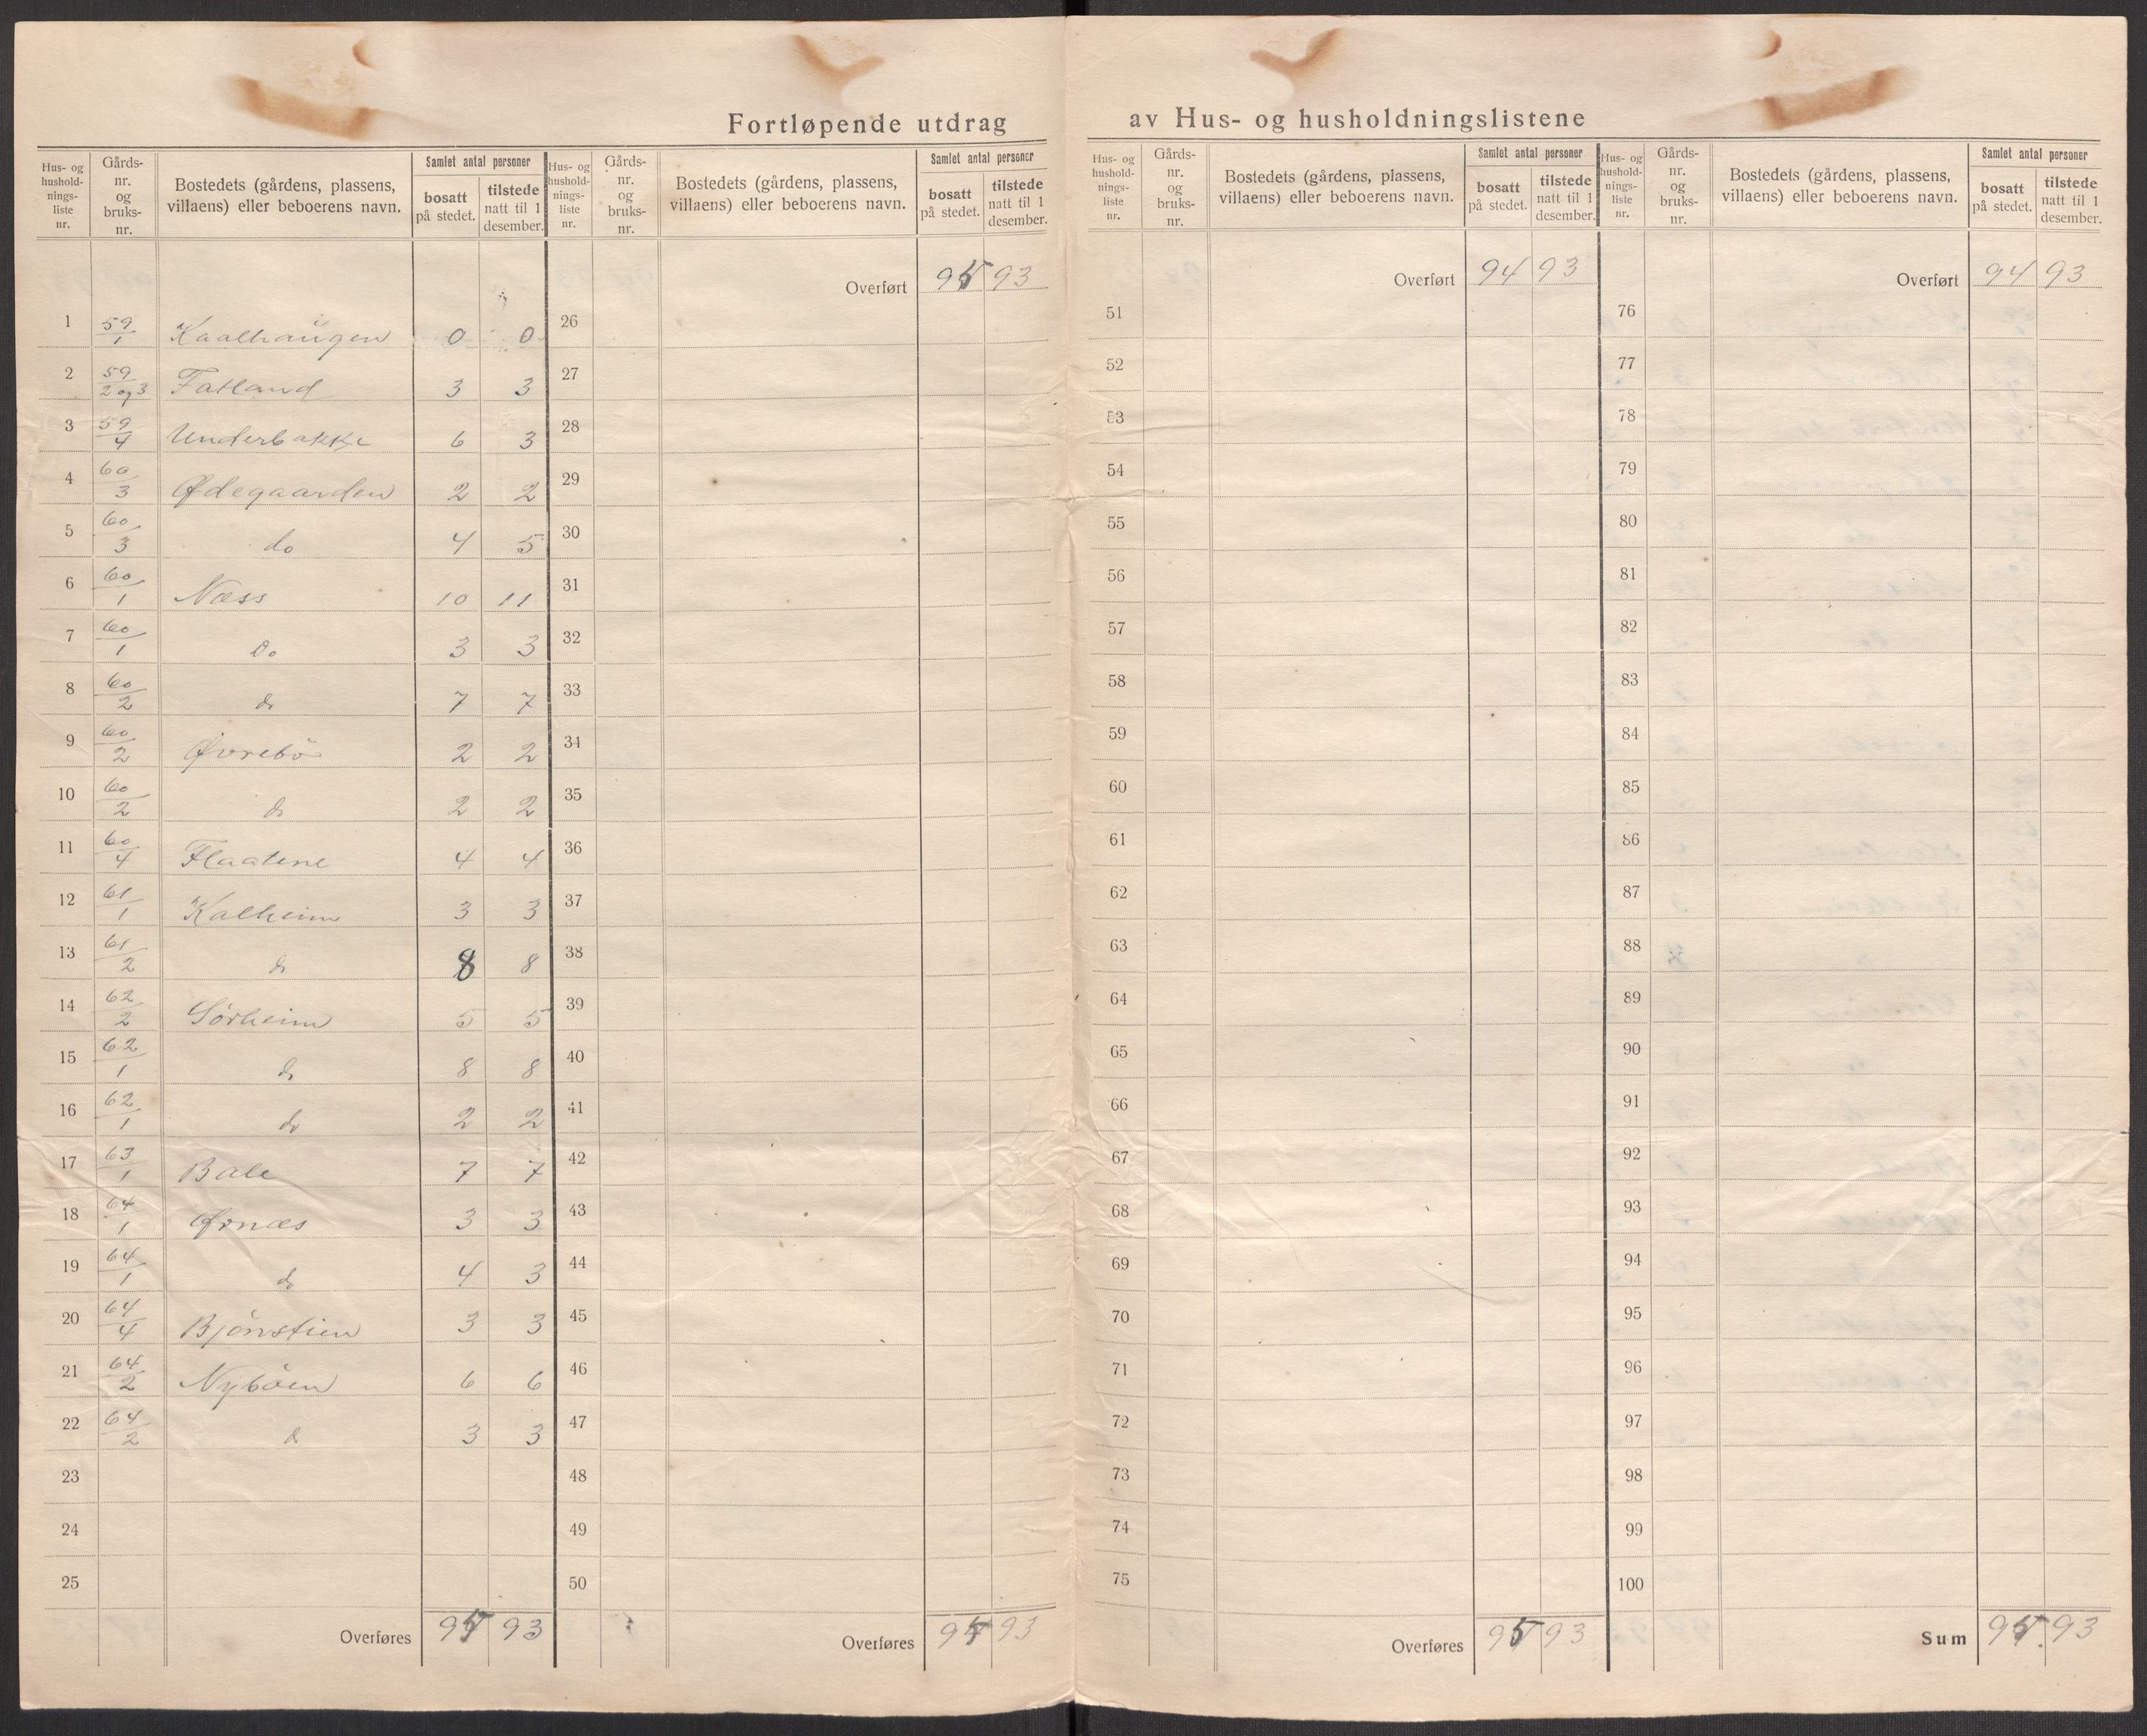 Fortløpende utdrag av Hus- og husholdningslistene
Hus- og hushold-nings-liste nr. | Gårds-nr. og bruks-nr. | Bostedets (gårdens, plassens, villaens) eller beboerens navn. | Samlet antal personer | bosatt på stedet. | tilstede natt til 1 desember.
1 59/1 Kaalhaugen 0 0
2 59/2 og 3 Fatland 3 3
3 59/4 Underbakke 6 3
4 60/3 Ødegaarden 2 2
5 60/3 do 4 5
6 60/1 Næss 10 11
7 60/1 Do 3 3
8 60/2 do 7 7
9 60/2 Øvrebö 2 2
10 60/2 do 2 2
11 60/4 Flaatene 4 4
12 61/1 Kalheim 3 3
13 61/2 do 8 8
14 62/2 Sørheim 5 5
15 62/1 do 8 8
16 62/1 do 2 2
17 63/1 Bale 7 7
18 64/1 Ørnæs 3 3
19 64/1 do 4 3
20 64/4 Bjönstien 3 3
21 64/2 Nyböen 6 6
22 64/2 do 3 3
23
24
25
Overføres 95 93
Hus- og hushold-nings-liste nr. | Gårds-nr. og bruks-nr. | Bostedets (gårdens, plassens, villaens) eller beboerens navn. | Samlet antal personer | bosatt på stedet. | tilstede natt til 1 desember.
Overført 95 93
26
27
28
29
30
31
32
33
34
35
36
37
38
39
40
41
42
43
44
45
46
47
48
49
50
Overføres 95 93
Hus- og hushold-nings-liste nr. | Gårds-nr. og bruks-nr. | Bostedets (gårdens, plassens, villaens) eller beboerens navn. | Samlet antal personer | bosatt på stedet. | tilstede natt til 1 desember.
Overført 94 93
51
52
53
54
55
56
57
58
59
60
61
62
63
64
65
66
67
68
69
70
71
72
73
74
75
Overføres 95 93
Hus- og hushold-nings-liste nr. | Gårds-nr. og bruks-nr. | Bostedets (gårdens, plassens, villaens) eller beboerens navn. | Samlet antal personer | bosatt på stedet. | tilstede natt til 1 desember.
Overført 94 93
76
77
78
79
80
81
82
83
84
85
86
87
88
89
90
91
92
93
94
95
96
97
98
99
100
Sum 95 93